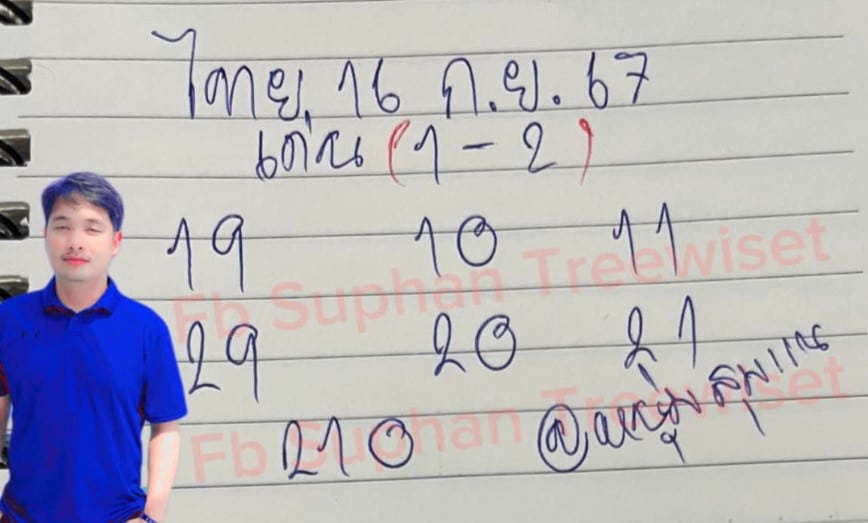 ไทย 16 ก.ย. 67
เด่น (1 - 2)
19 10 11
Fb Suphan Treewiset
29 20 21
210 @หนุ่มสุพรรณ
Fb Suphan Treewiset